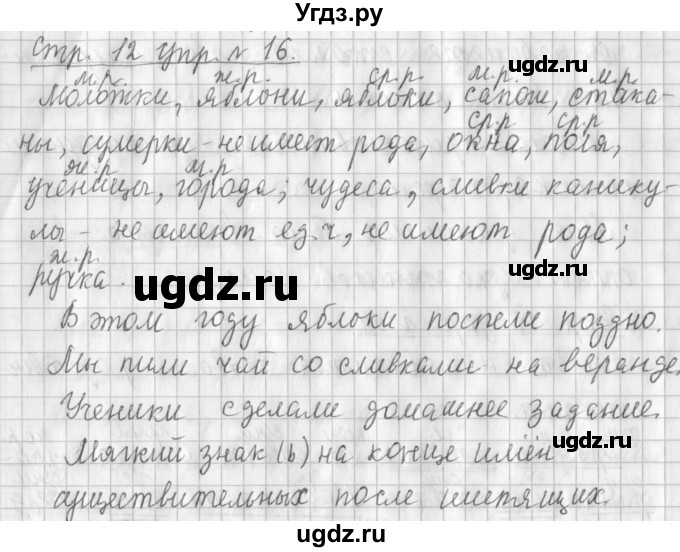 Угдз.ру
Стр. 12 упр. № 16.
м.р. ж.р. ср.р. м.р. м.р.
Молотки, яблони, яблоки, сапоги, стака-
ср.р ср.р
ны, сумерки - не имеет рода, окна, поля,
ж.р м.р
ученицы, города; чудеса, сливки канику-
лы - не имеют ед.ч, не имеют рода;
ж.р.
ручка.
В этом году яблоки поспели поздно.
Мы пили чай со сливками на веранде.
Ученики сделали домашнее задание.
Мягкий знак (ь) на конце имён
существительных после шипящих
ugdz.ru
ugdz.ru
ugdz.ru
ugdz.ru
ugdz.ru